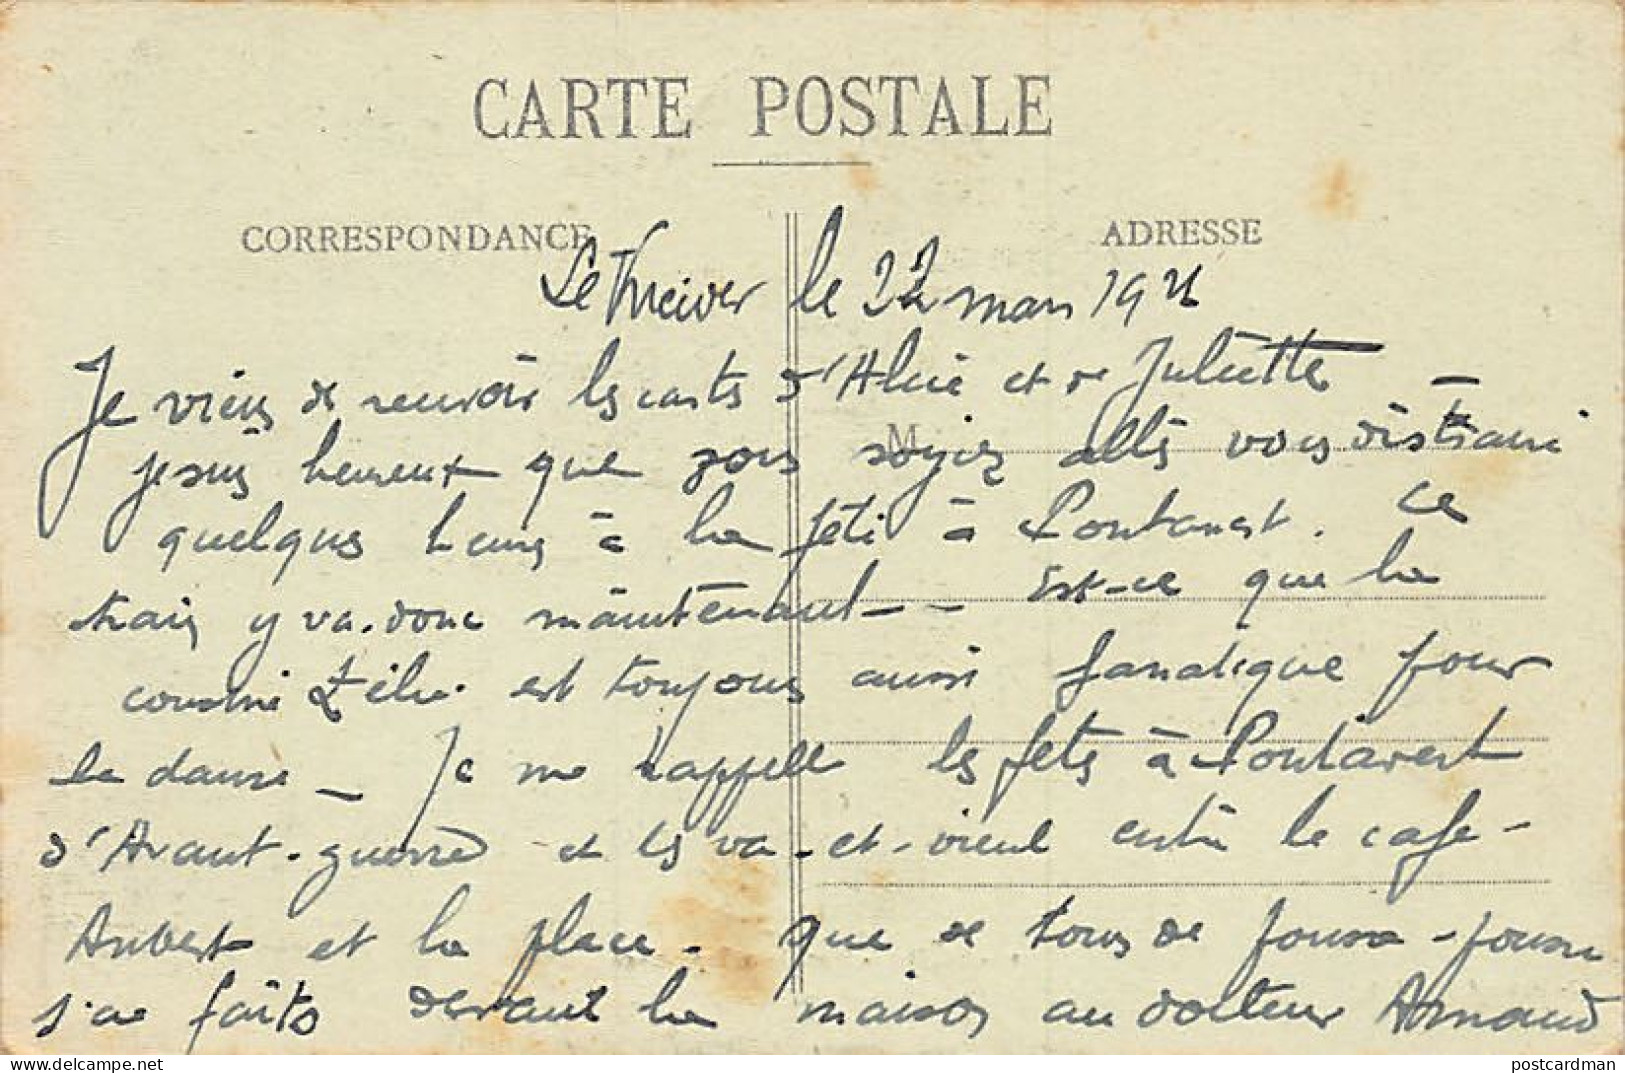 CARTE POSTALE
CORRESPONDANCE
ADRESSE
Le le 22 mars 19
Je viens de recevoir les cartes d'Alice et de Juliette –
M
je suis heureux que vous soyiez allés vous distraire
quelques heures à la fête à Pontavert. Ce
train y va-donc maintenant – – Est-ce que la
cousine Zélie est toujours aussi fanatique pour
la danse – Je me rappelle les fêtes à Pontavert
d'Avant-guerre et les va-et-vient entre le café-
Aubert et la place. que de tours de
j'ai faits devant la maison au docteur Arnaud
postcardman